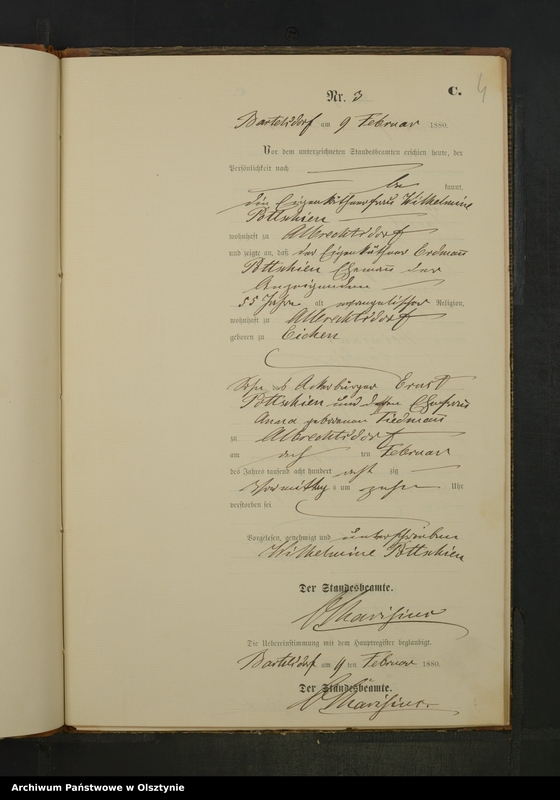 C. 4
Nr. 3
Bartelsdorf am 9 Februar 1880.
Vor dem unterzeichneten Standesbeamten erschien heute, der
Persönlichkeit nach
be kannt,
die Eigenkäthnerfrau Wilhelmine
Pottschien
wohnhaft zu Albrechtsdorf
und zeigte an, daß der Eigenkäthner Erdmann
Pottschien Ehemann der
Anzeigenden
55 Jahre alt evangelischer Religion,
wohnhaft zu Albrechtsdorf
geboren zu Eichen
Sohn des Ackerbürger Ernst
Pottschien und dessen Ehefrau
Anna geborenen Tiedmann
zu Albrechtsdorf
am ten Februar
des Jahres tausend acht hundert acht zig
Vormittag s um zehn Uhr
verstorben sei
Vorgelesen, genehmigt und unterschrieben
Wilhelmine Pottschien
Der Standesbeamte.
Die Uebereinstimmung mit dem Hauptregister beglaubigt.
Bartelsdorf am 9 ten Februar 1880.
Der Standesbeamte.
Archiwum Państwowe w Olsztynie